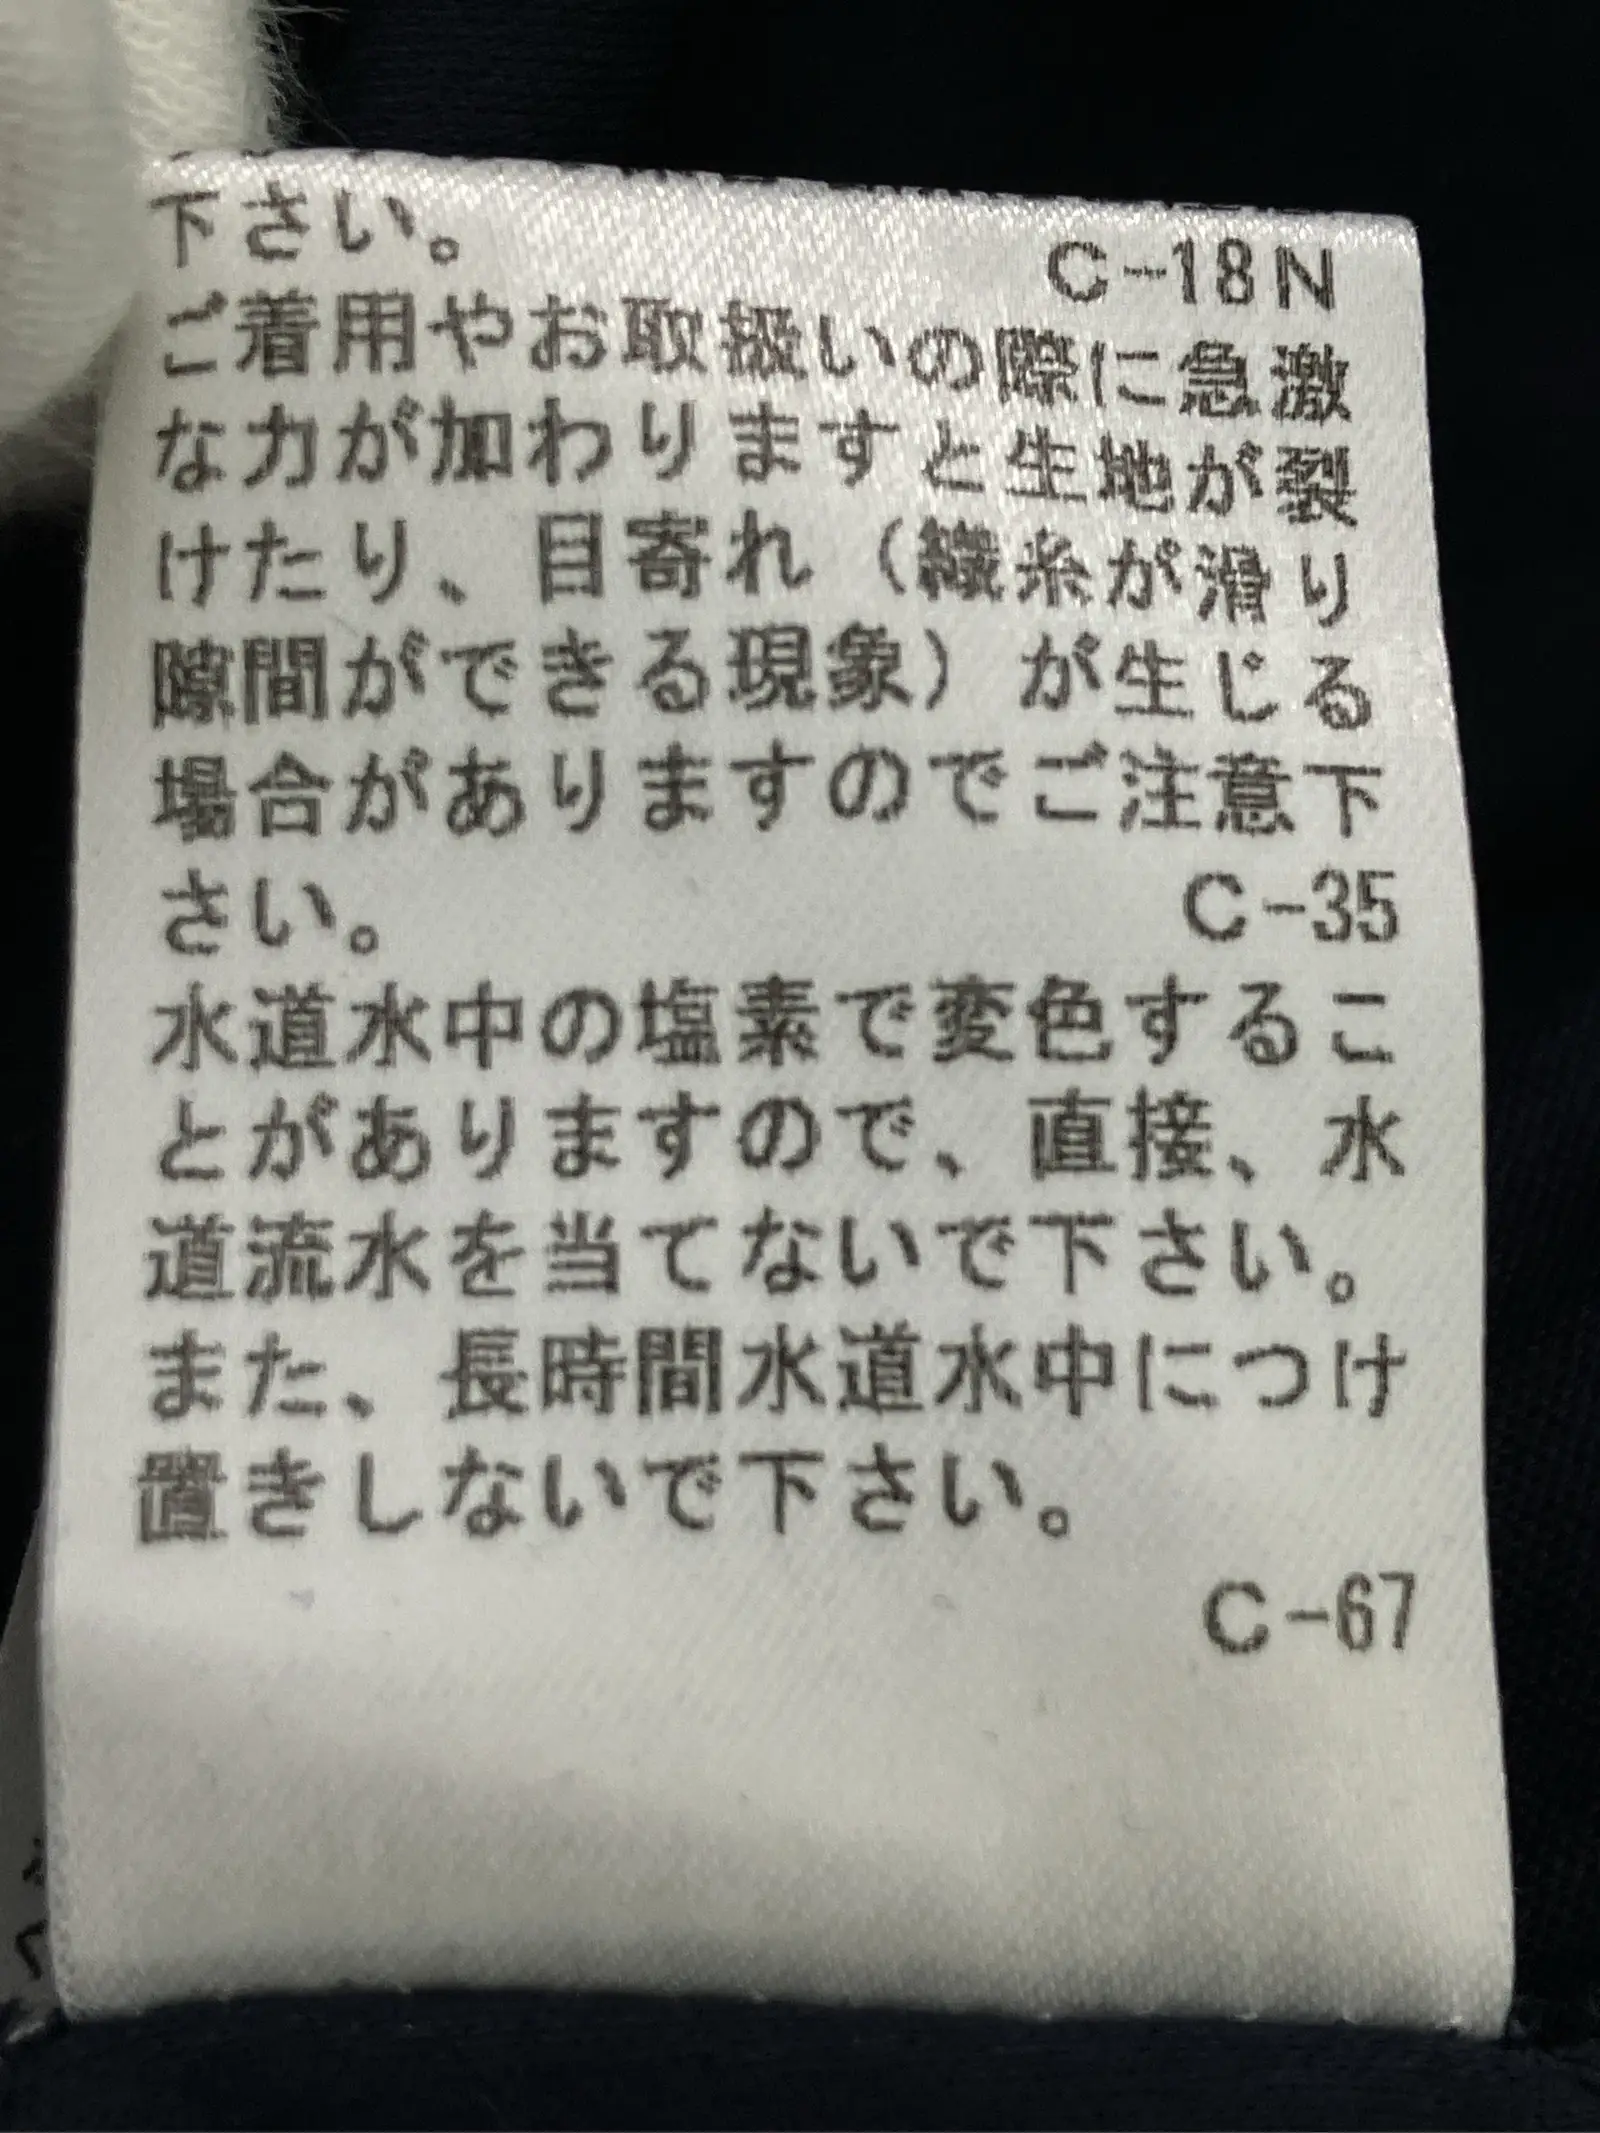 下さい。 C-18N
ご着用やお取扱いの際に急激
な力が加わりますと生地が裂
けたり、目寄れ（織糸が滑り
隙間ができる現象）が生じる
場合がありますのでご注意下
さい。 C-35
水道水中の塩素で変色するこ
とがありますので、直接、水
道流水を当てないで下さい。
また、長時間水道水中につけ
置きしないで下さい。
C-67